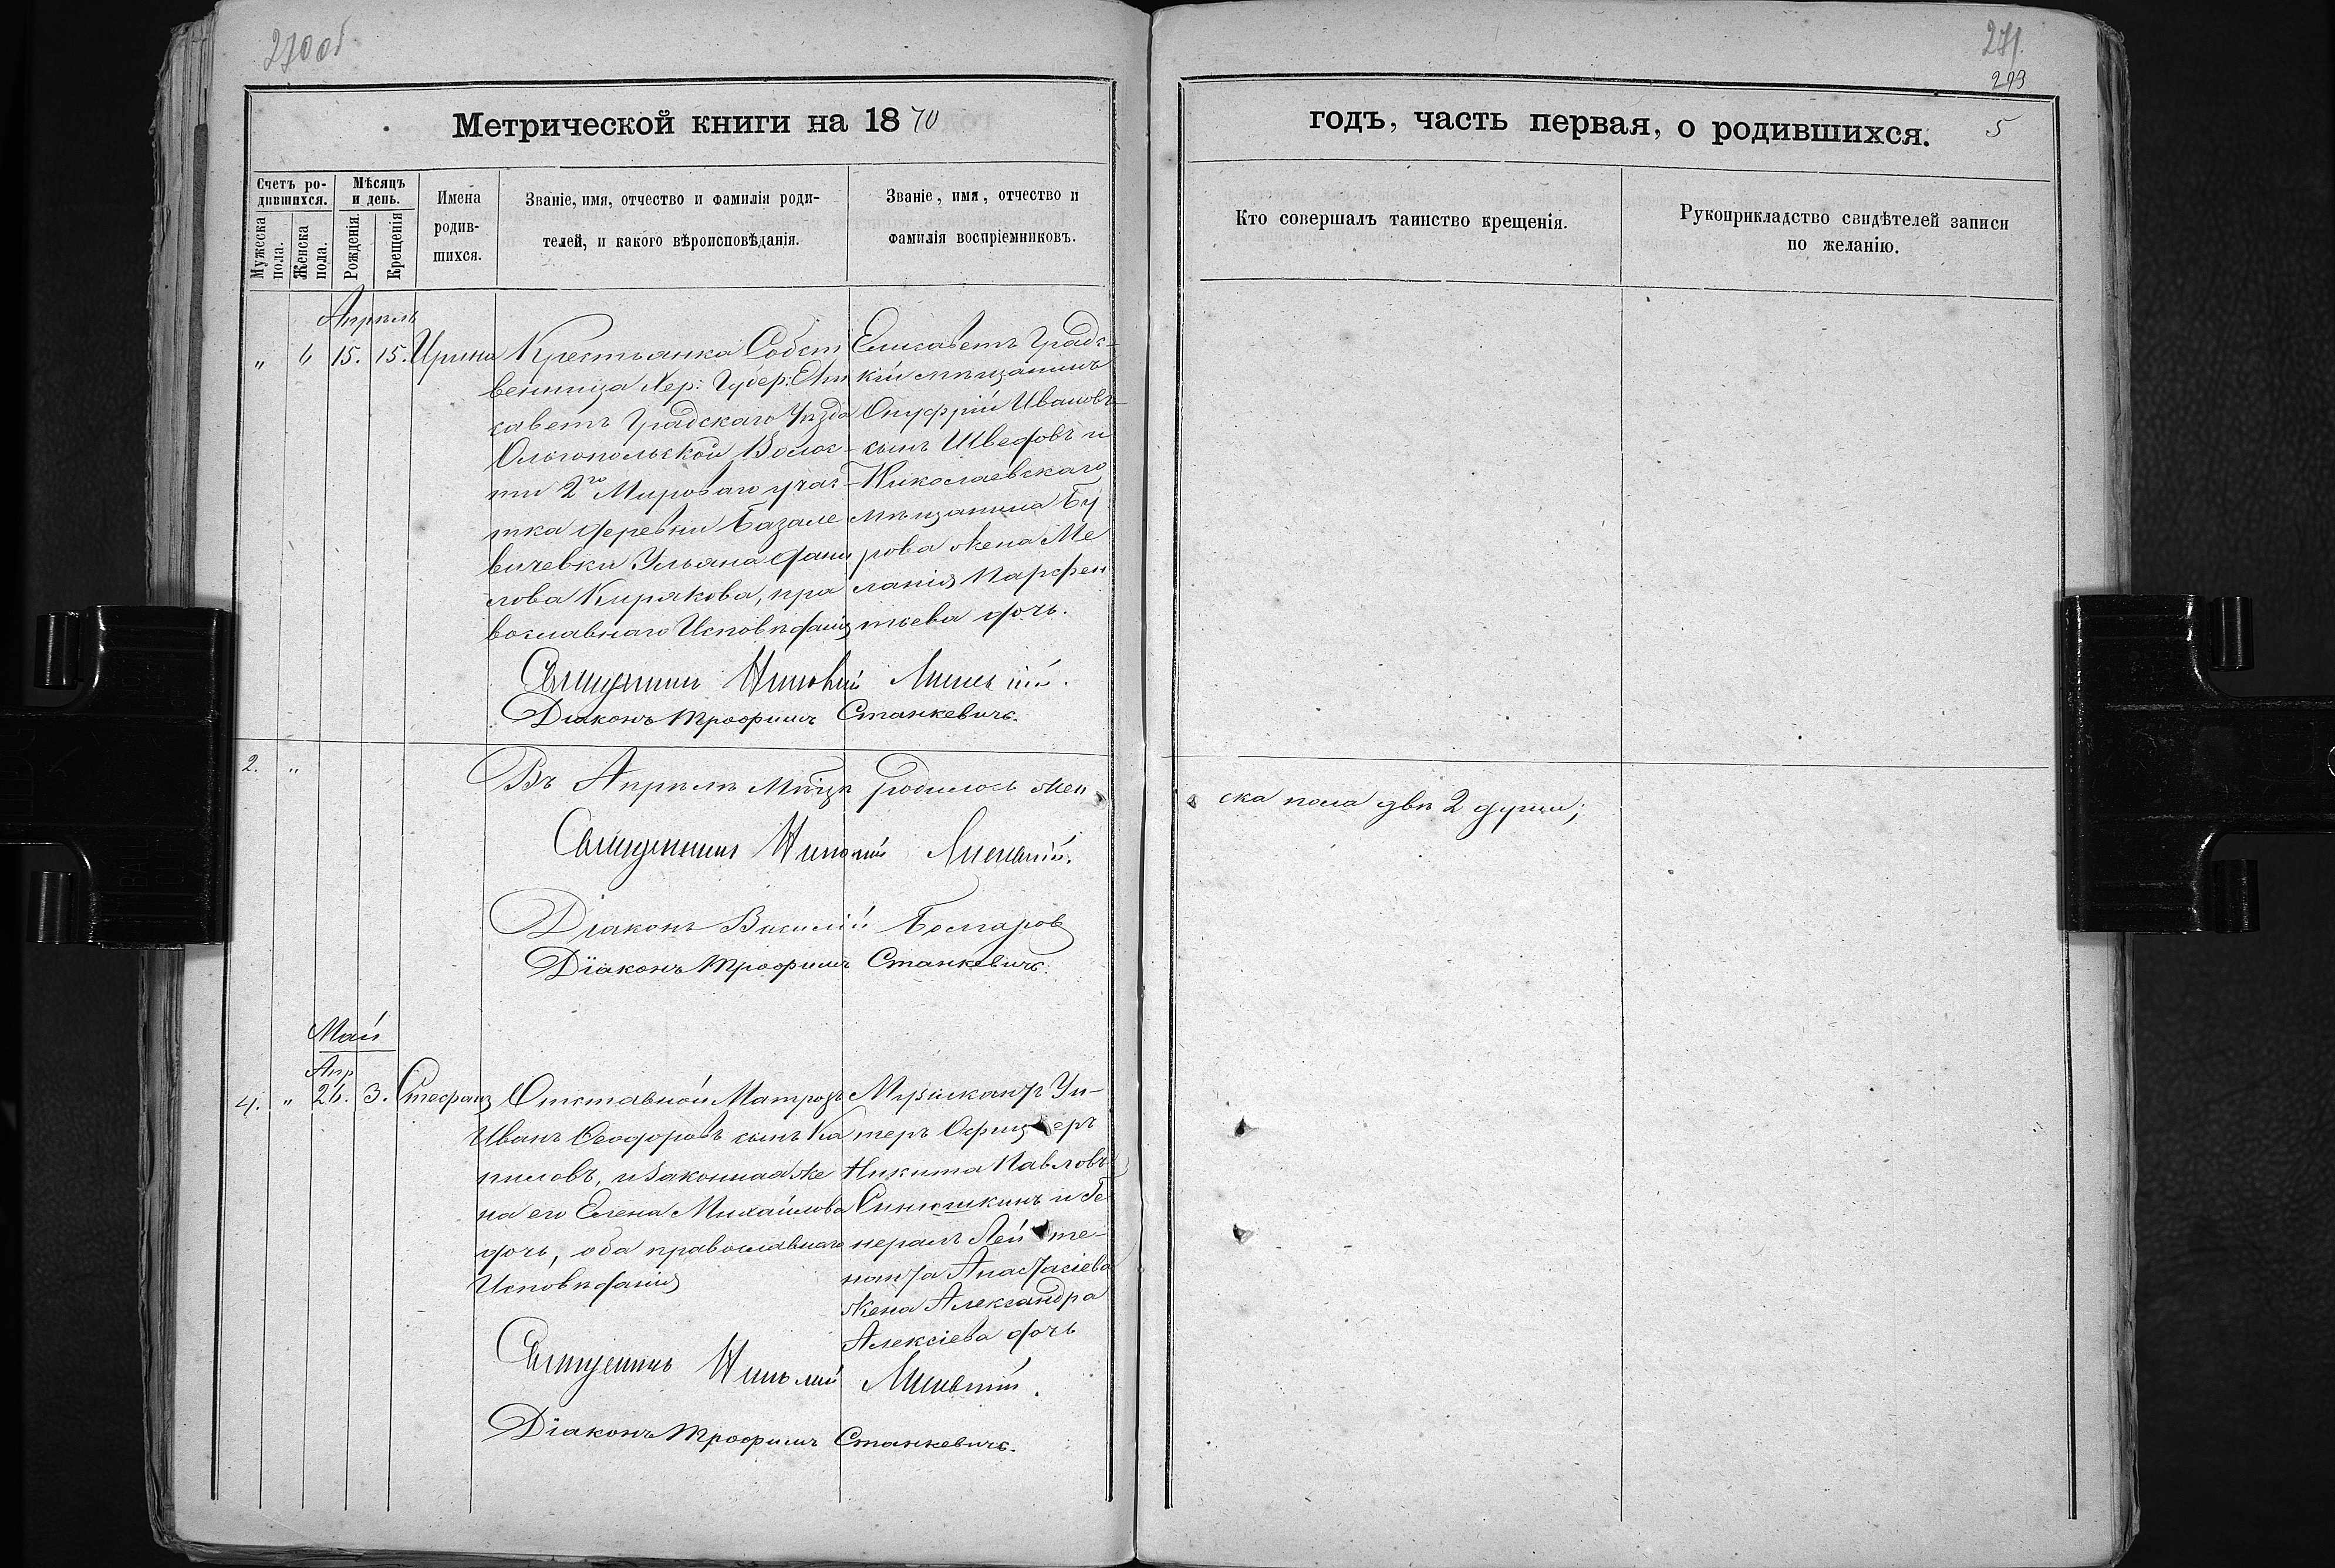 270 об
271.
293
Метрической книги на 1870
годъ, часть первая, о родившихся. 5
Счетъ родившихся.
Мужеска пола.
Женска пола.
Мѣсяцъ и день.
Рожденія.
Крещенія
Имена
родив-
шихся.
Званіе, имя, отчество и фамилія роди-
телей, и какого вѣроисповѣданія.
Званіе, имя, отчество и
фамилія воспріемниковъ.
Кто совершалъ таинство крещенія.
Рукоприкладство свидѣтелей записи
по желанію.
Апрель
„ 6 15. 15. Ирина
Крестьянка Собст
венница Хер: Губер: Ели
саветъ Градскаго Уѣзда
Ольгопольской Волос-
ти 2го Мироваго учас-
тка деревни Базале
вичевки Ульяна Дани
лова Кирякова, пра
вославнаго Исповѣданія
Елисаветъ Градс-
кій мѣщанинъ
Онуфрій Ивановъ
сынъ Шведовъ и
Николаевскаго
мѣщанина Бу
рова жена Ме
ланія Парфен
тьева дочь.
Священникъ
Діаконъ Трофимъ Станкевичъ.
2. „
Въ Апрѣлѣ Мѣсяцѣ родилось жен
ска пола двѣ 2 души;
Священникъ
Діаконъ Василій
Діаконъ Трофимъ Станкевичъ.
Май
Апр
4. „ 26. 3. Стефанъ
Отставной Матрозъ
Иванъ Феодоровъ сынъ Ка
пиловъ, и Законная же
на его Елена Михайлова
дочь, оба православнаго
Исповѣданія
Музыкантъ Ун-
теръ Офицеръ
Никита Павловъ
Синюшкинъ и Ге
нералъ Лейте-
нанта Анастасіева
жена Александра
Алексіева дочь
Священникъ
Діаконъ Трофимъ Станкевичъ.